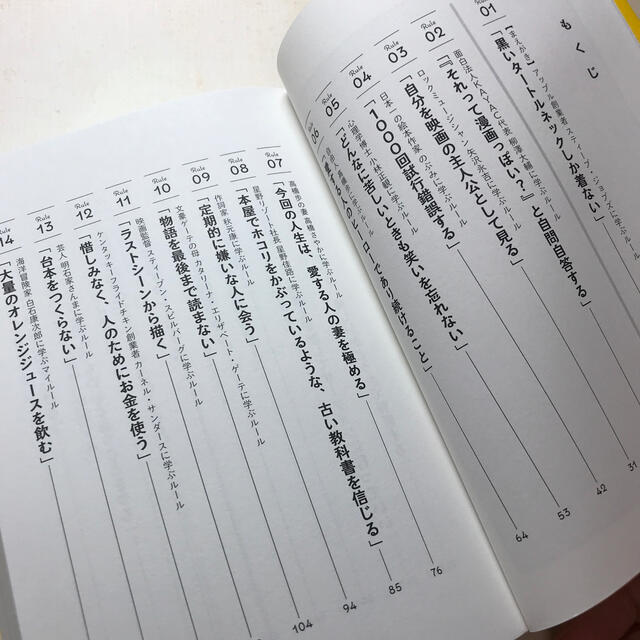 もくじ
まえがき
Rule
01
アップル創業者 スティーブ・ジョブズに学ぶルール
「黒いタートルネックしか着ない」
31
Rule
02
面白法人KAYAC代表 柳澤大輔に学ぶルール
「『それって漫画っぽい?』と自問自答する」
42
Rule
03
ロックミュージシャン 矢沢永吉に学ぶルール
「自分を映画の主人公として見る」
53
Rule
04
日本一の絵本作家 のぶみに学ぶルール
「1000回試行錯誤する」
64
Rule
05
心理学博士 小林正観に学ぶルール
「どんなに苦しいときも笑いを忘れない」
06
ヒーローであり続けること」
Rule
07
高橋歩の妻 高橋さやかに学ぶルール
「今回の人生は、愛する人の妻を極める」
76
Rule
08
星野リゾート社長 星野佳路に学ぶルール
「本屋でホコリをかぶっているような、古い教科書を信じる」
85
Rule
09
作詞家 秋元康に学ぶルール
「定期的に嫌いな人に会う」
94
Rule
10
文豪ゲーテの母 カタリーナ・エリザベート・ゲーテに学ぶルール
「物語を最後まで読まない」
104
Rule
11
映画監督 スティーブン・スピルバーグに学ぶルール
「ラストシーンから描く」
Rule
12
ケンタッキーフライドチキン創業者 カーネル・サンダースに学ぶルール
「惜しみなく、人のためにお金を使う」
Rule
13
芸人 明石家さんまに学ぶルール
「台本をつくらない」
Rule
14
海洋冒険家 白石康次郎に学ぶマイルール
「大量のオレンジジュースを飲む」